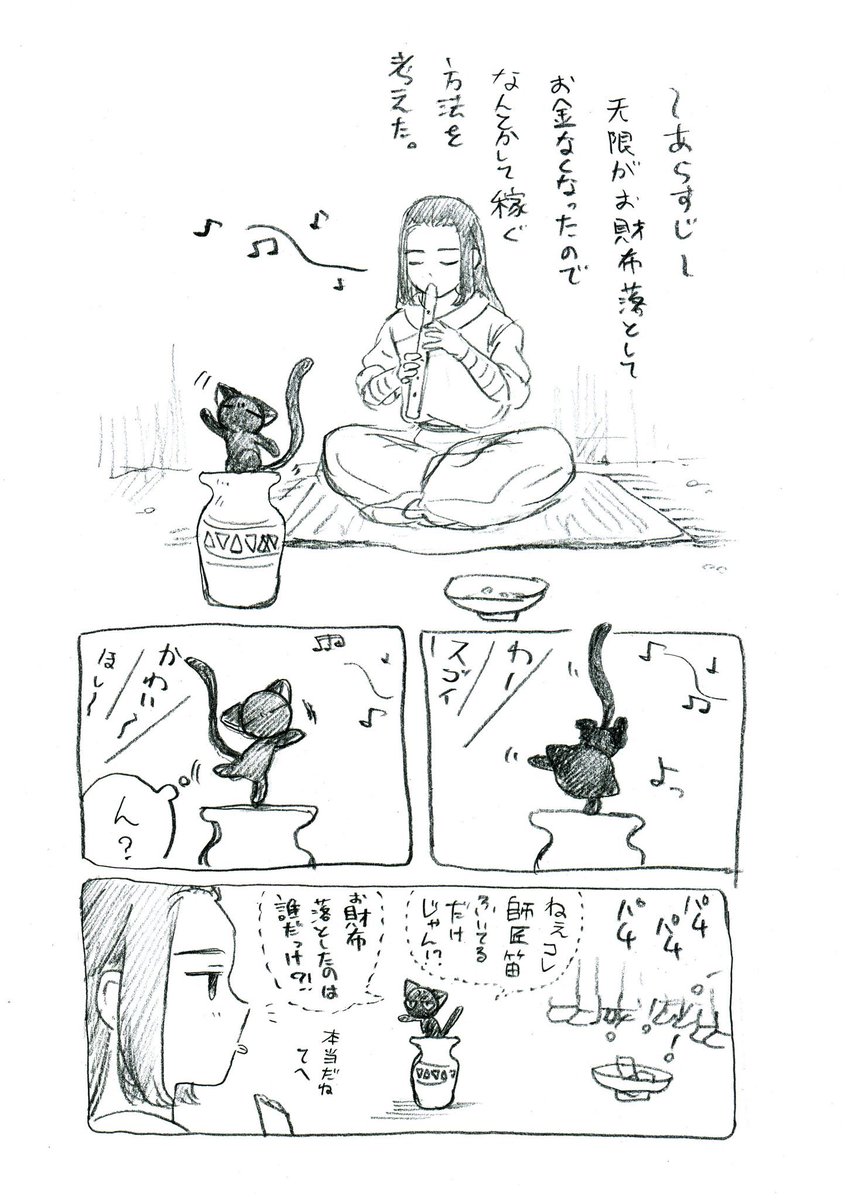 〜あらすじ〜
无限がお財布落として
お金なくなったので
なんとかして稼ぐ
方法を
考えた。
わー
スゴイ
よっ
かわい〜
ほし〜
ん?
パチ
パチ
パチ
ねえコレ
師匠笛
ふいてる
だけ
じゃん!?
お財布
落としたのは
誰だっけ?!
本当だね
てへ